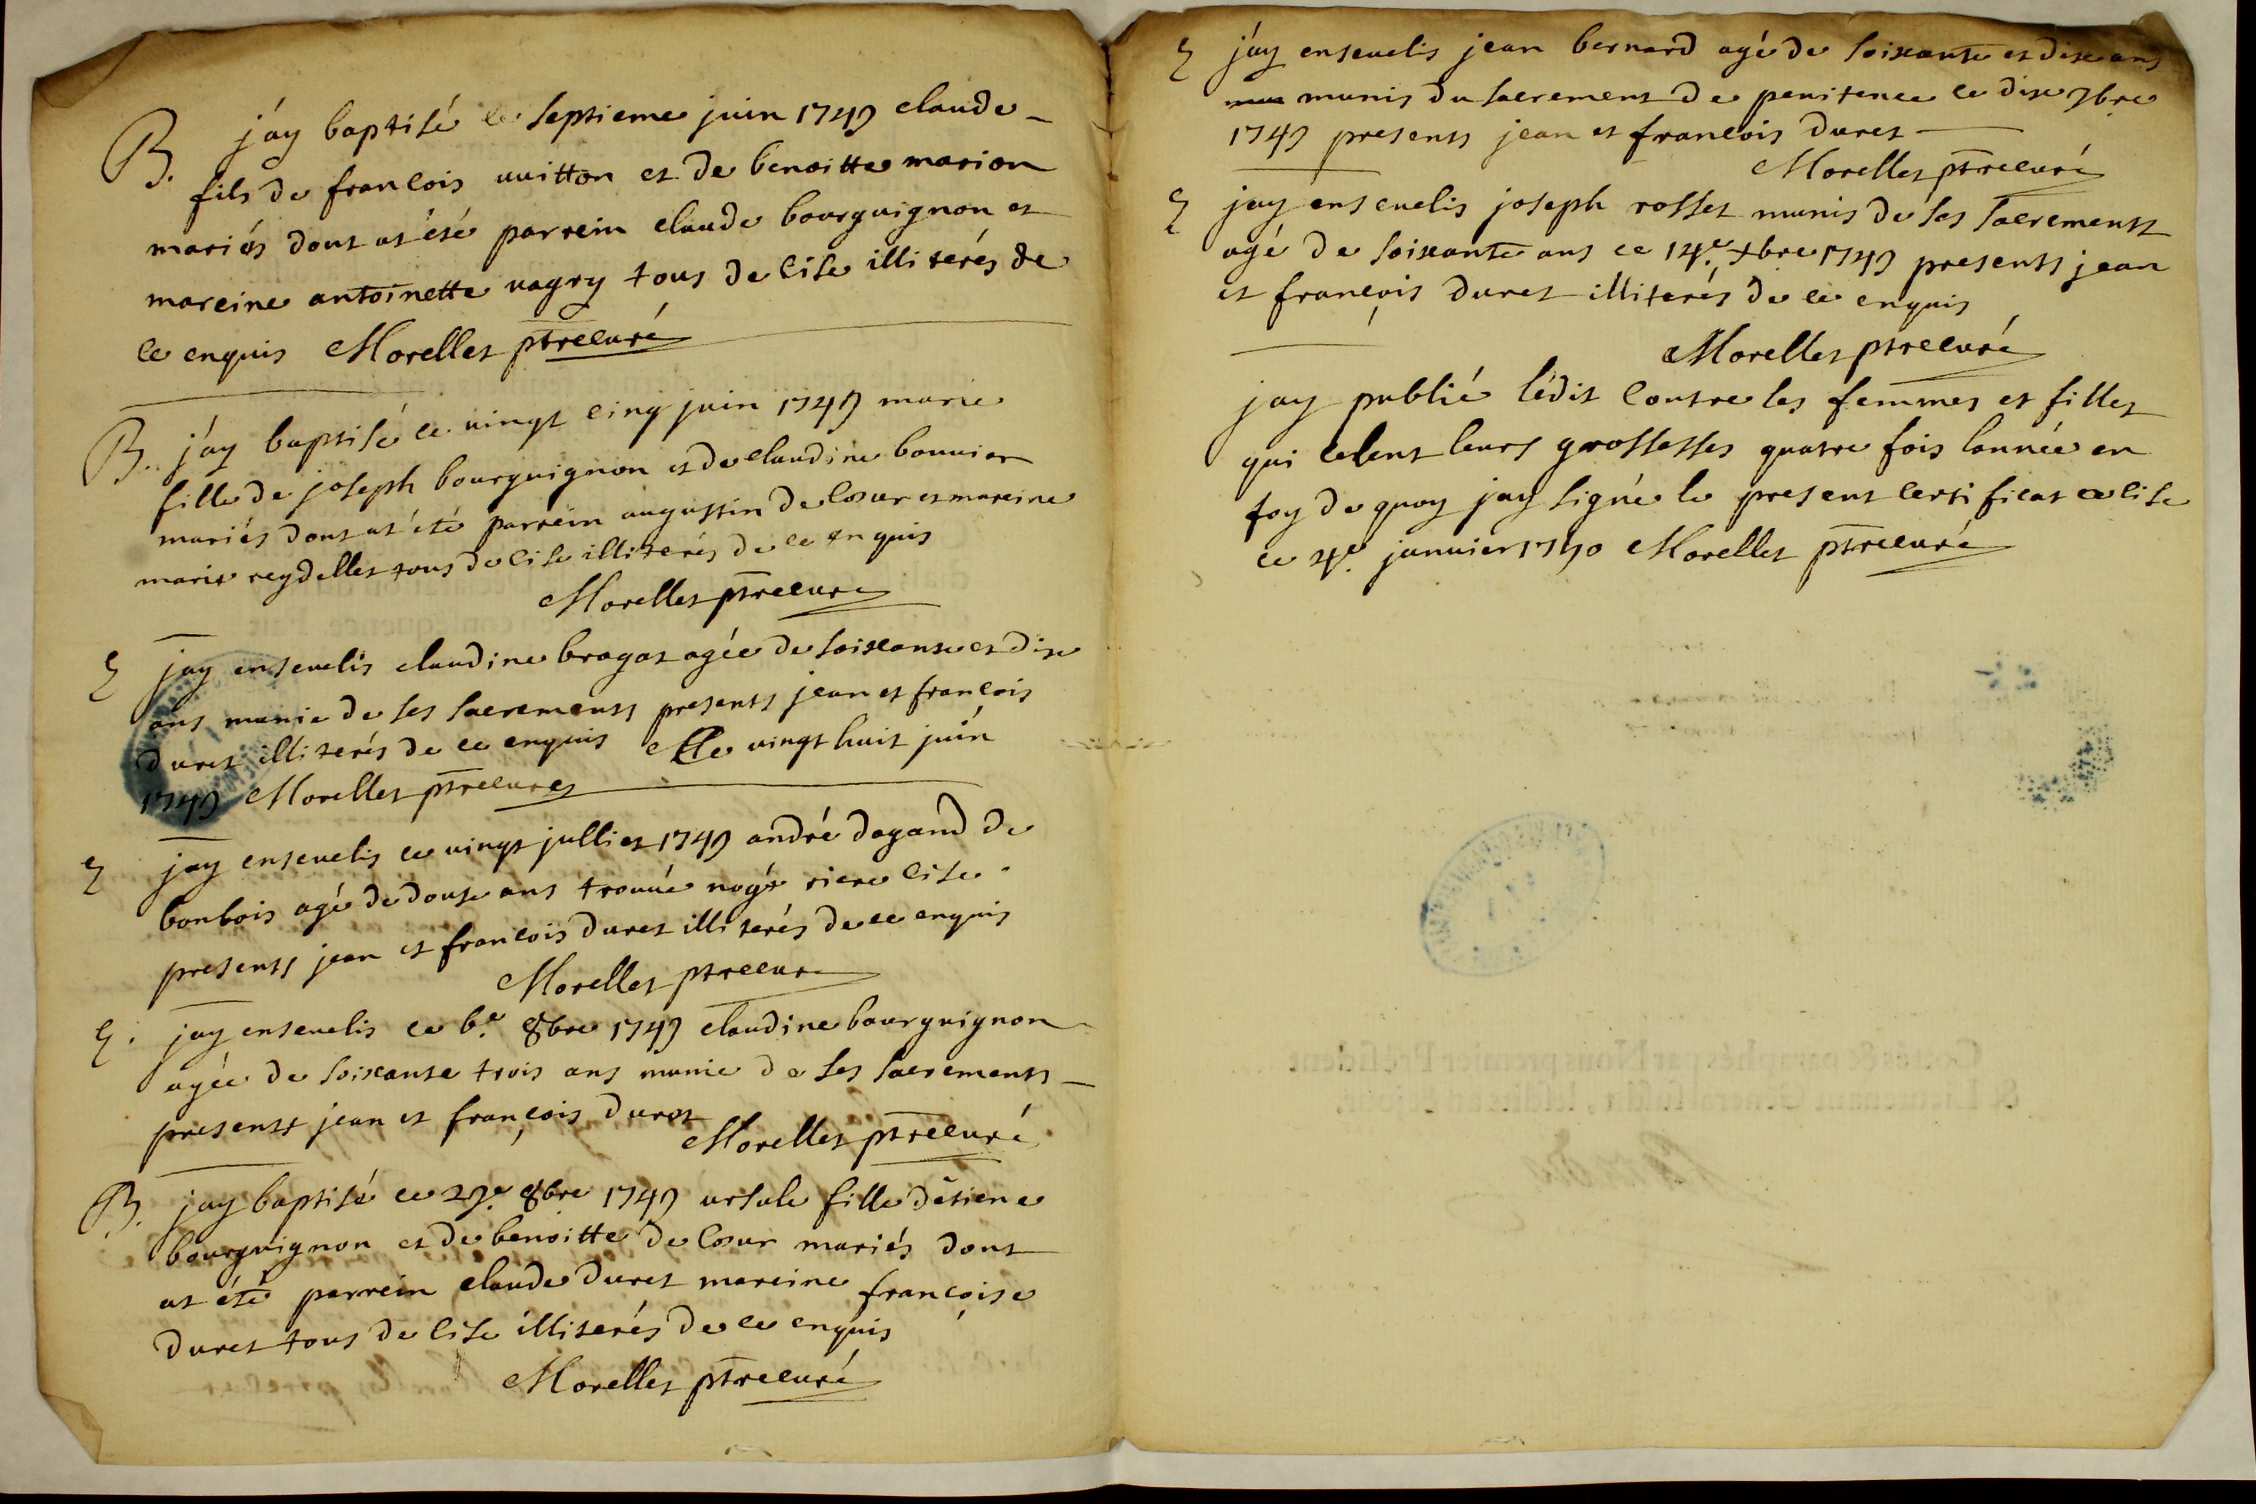 B. j'ay baptisé ce septieme juin 1749 claude
fils de francois vuitton et de benoitte marion
mariés dont at été parrein claude bourguignon et
mareine antoinette vagry tous de cise illiterés de
ce enquis Morellet ptre curé
B. j'ay baptisé ce vingt cinq juin 1749 marie
fille de joseph bourguignon et de claudine bouvier
mariés dont at été parrein augustin de coeur et mareine
marie reydellet tous de cise illiterés de ce enquis
Morellet ptre curé
E jay ensevelis claudine bragat agée de soixante et dix
ans munie de ses sacrements presents jean et francois
duret illiterés de ce enquis ce vingt huit juin
1749 Morellet ptre curé
E jay ensevelis ce vingt julliet 1749 andré dagand de
bonbois agé de douse ans trouvé noyé riere cise
presents jean et francois duret illiterés de ce enquis
Morellet ptre curé
E. jay ensevelis ce 6e. 8bre 1749 claudine bourguignon
agée de soixante trois ans munie de ses sacrements
presents jean et françois duret
Morellet ptre curé
B. jay baptisé ce 29e 8bre 1749 ursule fille d'etiene
bourguignon et de benoitte de coeur mariés dont
at été parrein claude duret mareine françoise
duret tous de cise illiterés de ce enquis
Morellet ptre curé
E j'ay ensevelis jean bernard agé de soixante et dix ans
munis du sacrement de penitence ce dix 9bre
1749 presents jean et francois duret
Morellet ptre curé
E jay ensevelis joseph rosset munis de ses sacrements
agé de soixante ans ce 14e. xbre 1749 presents jean
et françois duret illiterés de ce enquis
Morellet ptre curé
jay publié lédit contre les femmes et filles
qui celent leurs grossesses quatre fois lannée en
foy de quoy jay signé le present certificat a cise
ce 4e. janvier 1750 Morellet ptre curé